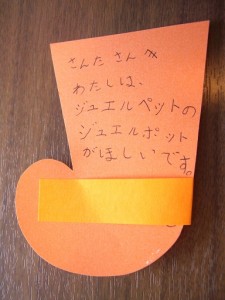 さんたさんへ
わたしは、
ジュエルペットの
ジュエルポット
がほしいです。